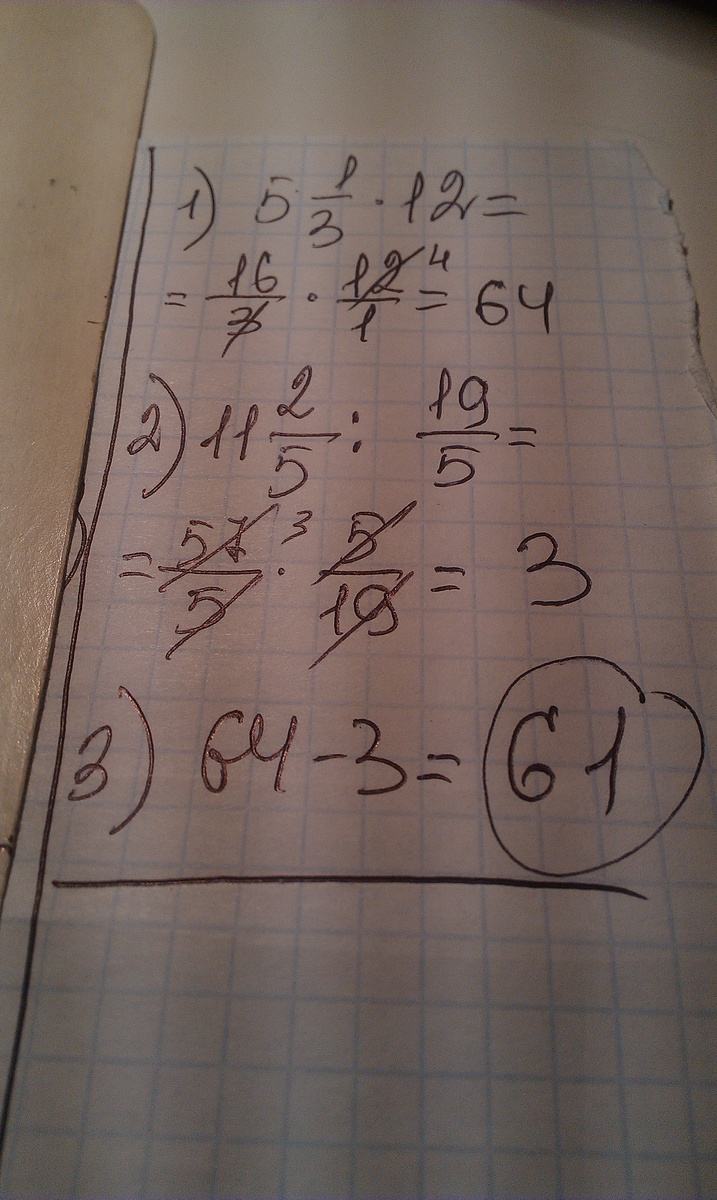 1) 5 1/3 · 12 =
= 16/3 · 12/1 4 = 64
2) 11 2/5 : 19/5 =
= 57/5 3 · 5/19 = 3
3) 64 - 3 = 61